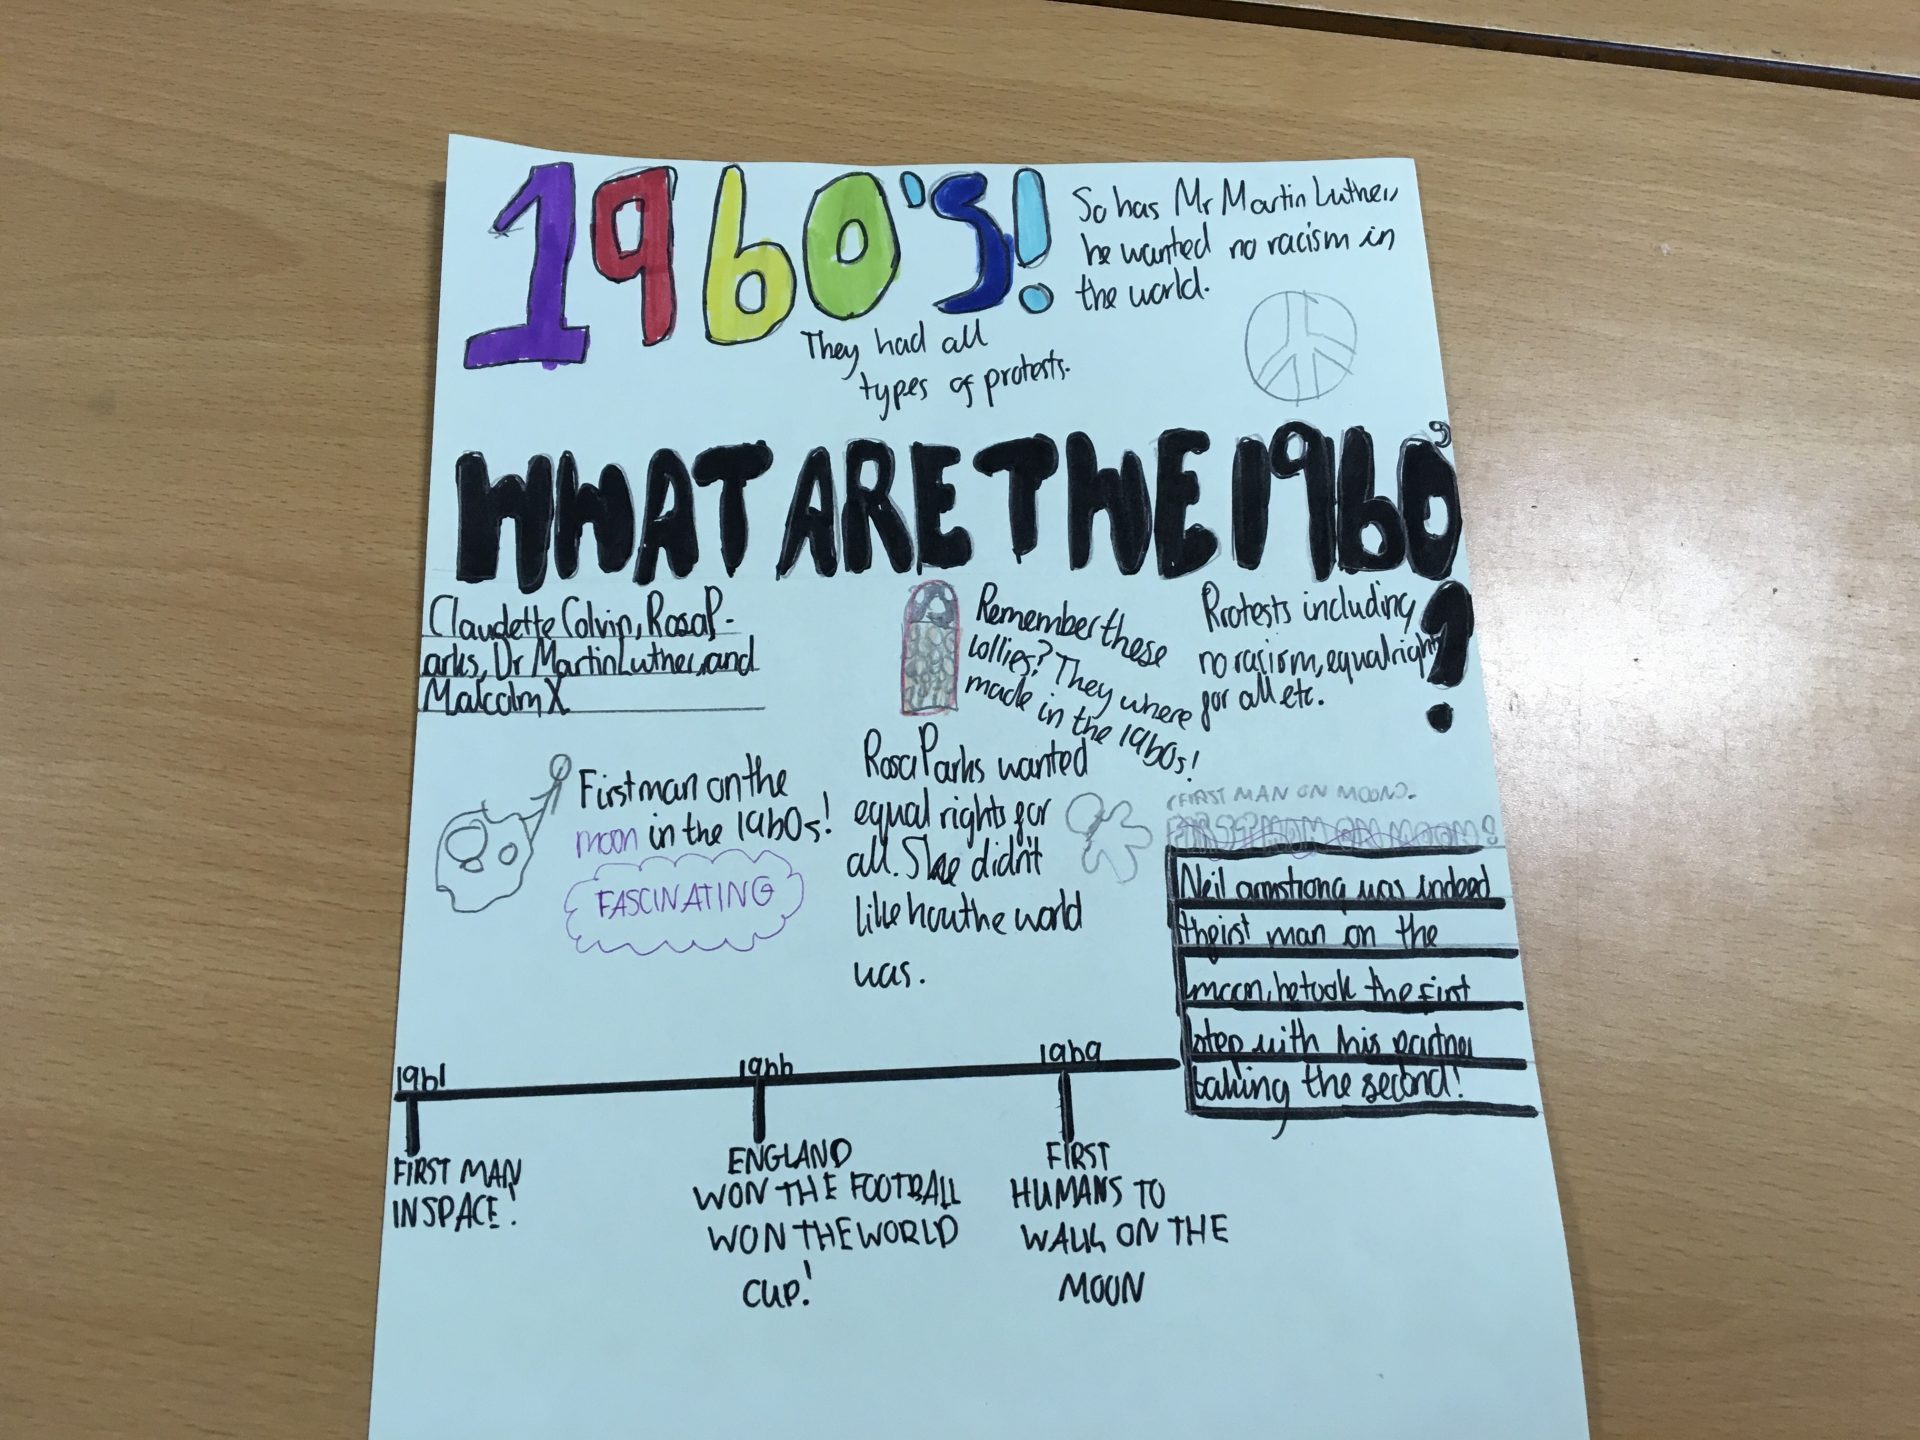 1960's!
So has Mr Martin Luther,
he wanted no racism in
the world.
They had all
types of protests.
WHAT ARE THE 1960'
?
Claudette Colvin, Rosa P-
arks, Dr Martin Luther, and
Malcolm X
Remember these
Lollies? They where
made in the 1960s!
Protests including
no racism, equal right
for all etc.
First man on the
moon in the 1960s!
FASCINATING
Rosa Parks wanted
equal rights for
all. She didn't
like how the world
was.
(FIRST MAN ON MOON).
FIRST MAN ON MOON!
Neil armstrong was indeed
the first man on the
moon, he took the first
step with his partner
taking the second!
1961
1966
1969
FIRST MAN
IN SPACE!
ENGLAND
WON THE FOOTBALL
WON THE WORLD
CUP!
FIRST
HUMANS TO
WALK ON THE
MOON